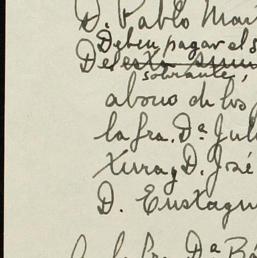 D. Pablo Mar
Deben pagar el s
De esta
sobrante,
abono de los
la fra. Dª Jul
xura y D. José
D. Eustaqu
la fra Dª Bá